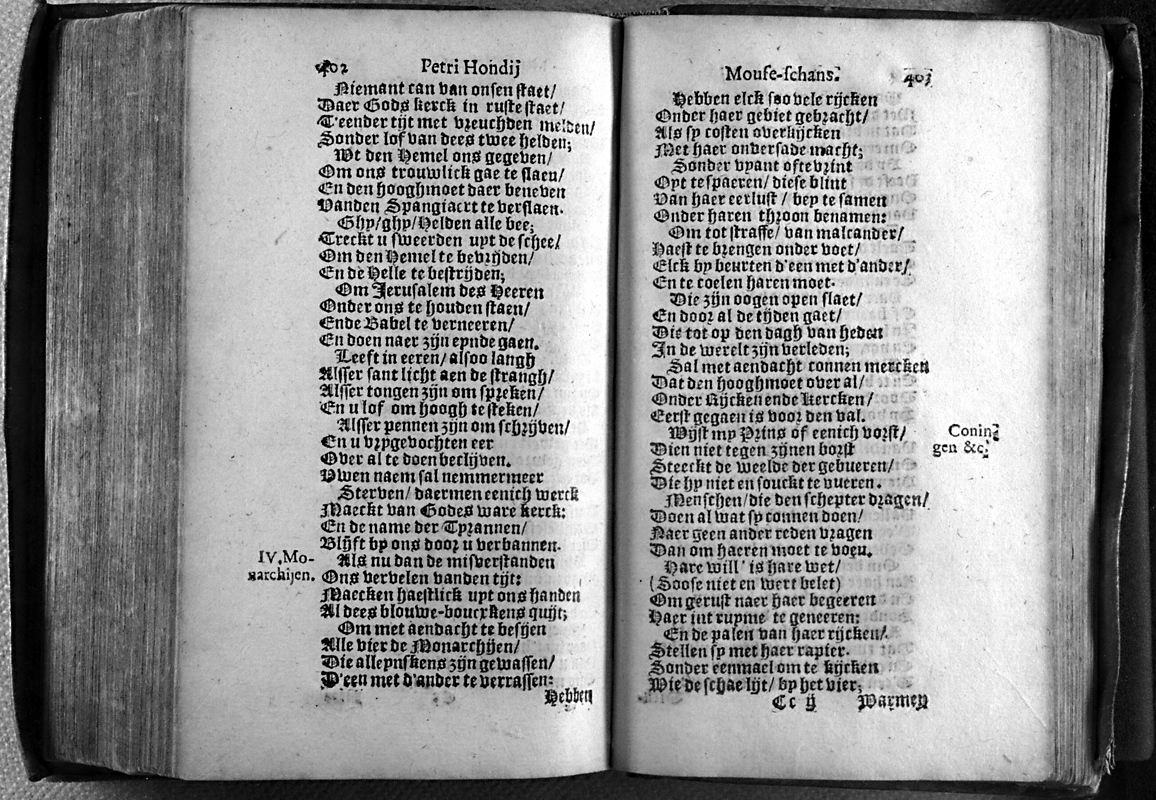 402 Petri Hondij
Niemant can van onsen staet/
Daer Gods kerck in ruste staet/
T'eender tijt met vreuchden melden/
Sonder lof van dees twee helden;
Wt den Hemel ons gegeven/
Om ons trouwlick gae te slaen/
En den hooghmoet daer beneven
Vanden Spangiaert te verslaen.
Ghy/ghy/Helden alle bee;
Treckt u sweerden uyt de schee/
Om den Hemel te bevrijden/
En de Helle te bestrijden;
Om Jerusalem des Heeren
Onder ons te houden staen/
Ende Babel te verneeren/
En doen naer zijn eynde gaen.
Leeft in eeren/ alsoo langh
Alsser sant licht aen de strangh/
Alsser tongen zijn om spreken/
En u lof om hoogh te steken/
Alsser pennen zijn om schrijven/
En u vrygevochten eer
Over al te doen beclijven.
Uwen naem sal nemmermeer
Sterven/ daermen eenich werck
Maeckt van Godes ware kerck:
En de name der Tyrannen/
Blijft by ons door u verbannen.
IV. Mo-
narchijen.
Als nu dan de misverstanden
Ons vervelen vanden tijt:
Maecken haestlick uyt ons handen
Al dees blouwe-bouckens quijt;
Om met aendacht te besijen
Alle vier de Monarchijen/
Die alleynskens zijn gewassen/
D'een met d'ander te verrassen:
Hebben
Mouse-schans. 403
Hebben elck soo vele rijcken
Onder haer gebiet gebracht/
Als sy costen overkijcken
Met haer onversade macht;
Sonder vyant ofte vrint
Oyt te spaeren/ diese blint
Van haer eerlust/ bey te samen
Onder haren throon benamen:
Om tot straffe/ van malcander/
Haest te brengen onder voet/
Elck by beurten d'een met d'ander/
En te coelen haren moet.
Die zijn oogen open slaet/
En door al de tijden gaet/
Die tot op den dagh van heden
In de werelt zijn verleden;
Sal met aendacht connen mercken
Dat den hooghmoet over al/
Onder Rijcken ende Kercken/
Eerst gegaen is voor den val.
Conin-
gen &c.
Wijst my Prins of eenich vorst/
Dien niet tegen zijnen borst
Steeckt de weelde der gebueren/
Die hy niet en souckt te vueren.
Menschen/die den schepter dragen/
Doen al wat sy connen doen/
Naer geen ander reden vragen
Dan om haeren moet te voen.
Hare will' is hare wet/
(Soose niet en wert belet)
Om gerust naer haer begeeren
Haer int ruyme te geneeren:
En de palen van haer rijcken/
Stellen sy met haer rapier.
Sonder eenmael om te kijcken
Wie de schae lijt/ by het vier;
Cc ij Warmen